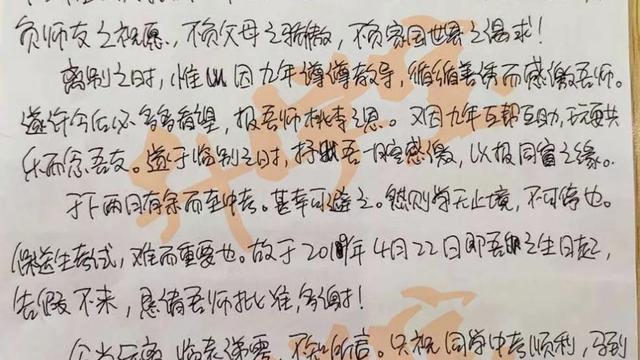 负师友之祝愿，不负父母之骄傲，不负家国世界之渴求！
离别之时，惟以因九年谆谆教导，循循善诱而感激吾师。
遂许今后必多多看望，报吾师桃李之恩。又因九年互帮互助，玩耍共
乐而念吾友。遂于临别之时，抒吾一腔感激，以报同窗之缘。
于下两月有余而至中考。甚幸可避之。然则学无止境，不可停也。
保送生考试，难而重要也。故于2019年4月22日即吾之生日起，
告假不来，恳请吾师批准，多谢！
今当远离，临表涕零，不知所言。只祝同学中考顺利，马到